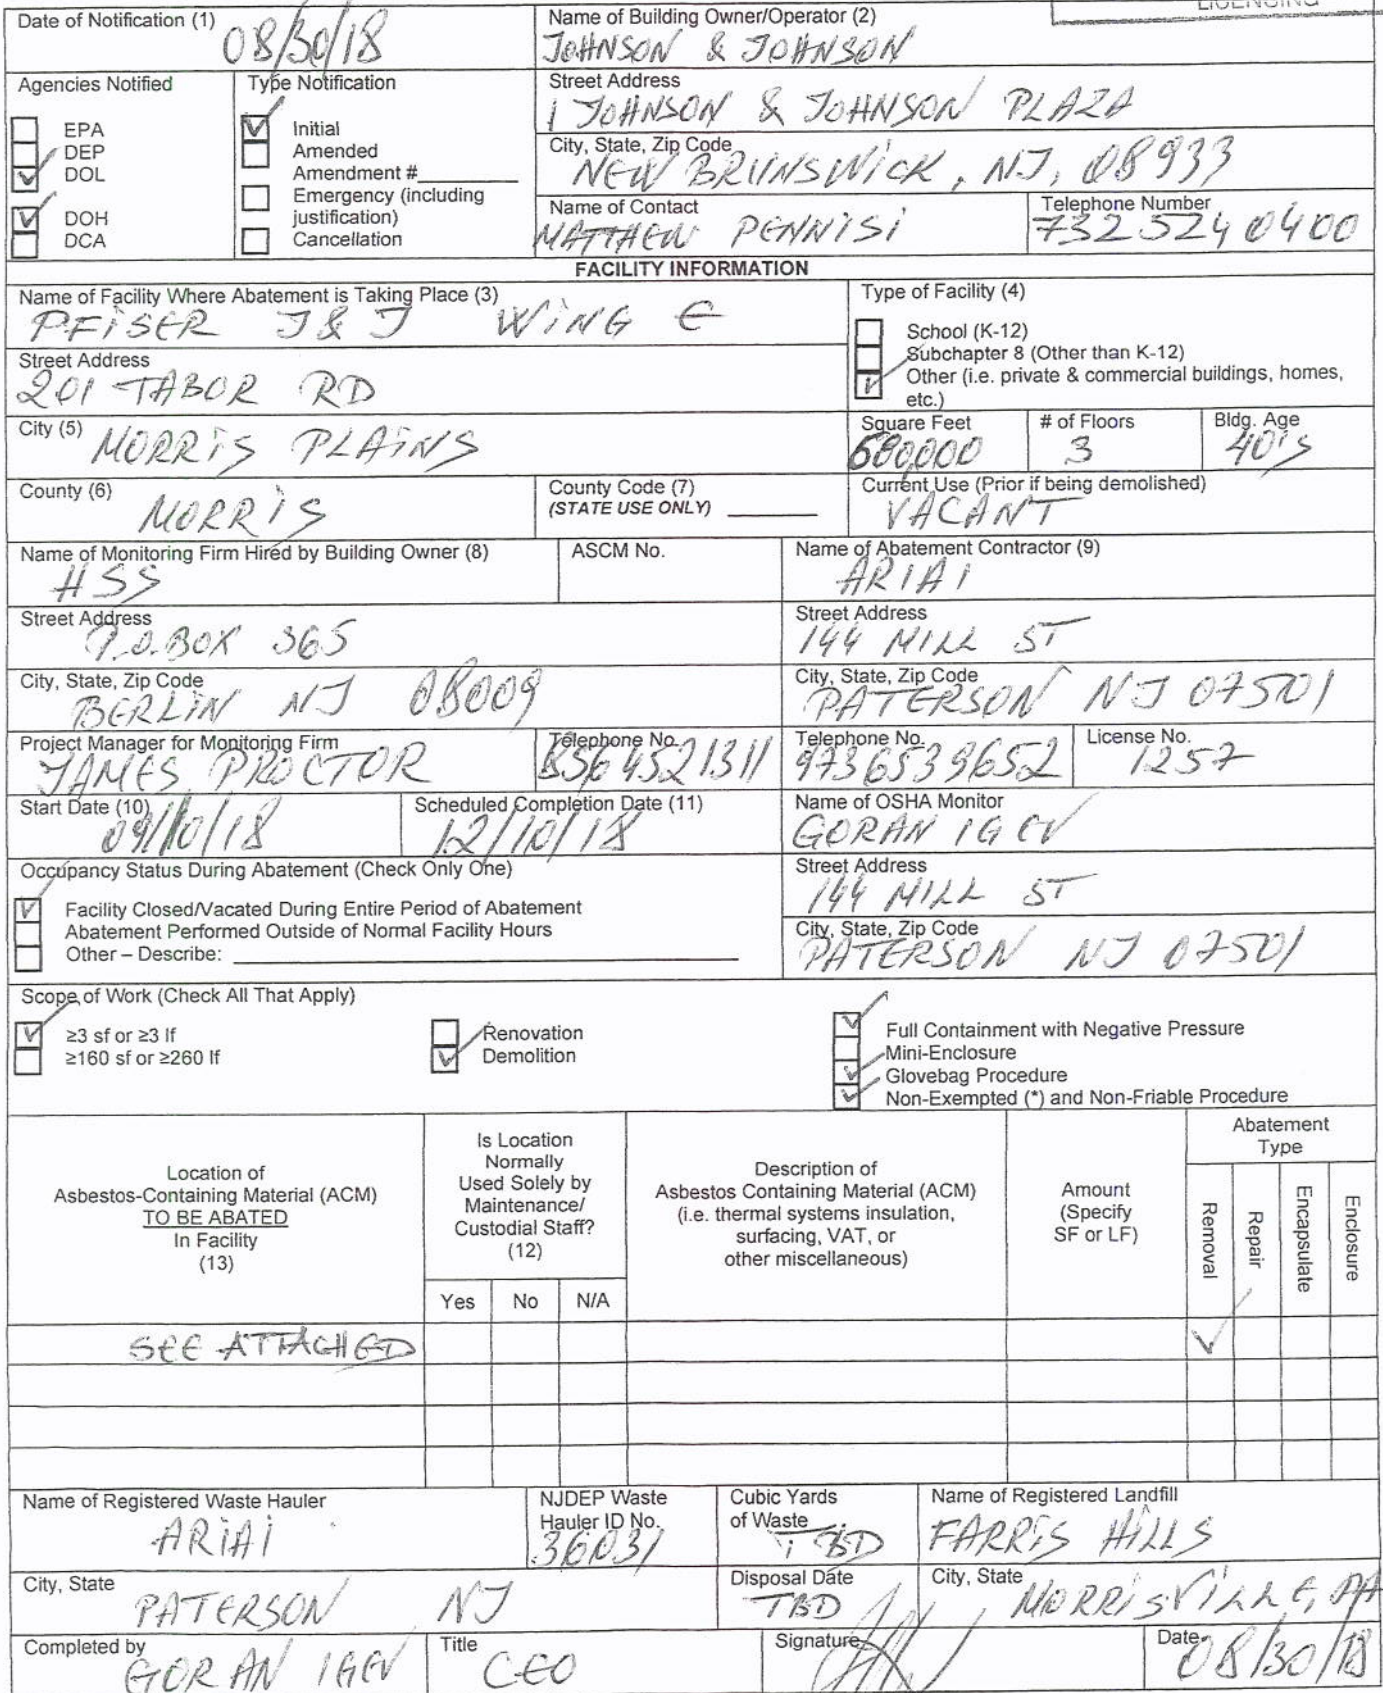 LICENSING
Date of Notification (1)
08/30/18
Name of Building Owner/Operator (2)
JOHNSON & JOHNSON
Agencies Notified
EPA
DEP
DOL
DOH
DCA
Type Notification
Initial
Amended
Amendment #
Emergency (including
justification)
Cancellation
Street Address
1 JOHNSON & JOHNSON PLAZA
City, State, Zip Code
NEW BRUNSWICK, NJ, 08933
Name of Contact
MATTHEW PENNISI
Telephone Number
732 524 0400
FACILITY INFORMATION
Name of Facility Where Abatement is Taking Place (3)
PFISER J & J WING E
Type of Facility (4)
School (K-12)
Subchapter 8 (Other than K-12)
Other (i.e. private & commercial buildings, homes,
etc.)
Street Address
201 TABOR RD
City (5)
MORRIS PLAINS
Square Feet
# of Floors
3
Bldg. Age
40's
County (6)
MORRIS
County Code (7)
(STATE USE ONLY)
Current Use (Prior if being demolished)
VACANT
Name of Monitoring Firm Hired by Building Owner (8)
HSS
ASCM No.
Name of Abatement Contractor (9)
ARIAI
Street Address
P.O.BOX 365
Street Address
144 MILL ST
City, State, Zip Code
BERLIN NJ 08009
City, State, Zip Code
PATERSON NJ 07501
Project Manager for Monitoring Firm
JAMES PROCTOR
Telephone No.
856 4521311
Telephone No.
9736539652
License No.
1257
Start Date (10)
09/10/18
Scheduled Completion Date (11)
12/10/18
Name of OSHA Monitor
GORAN IGEV
Occupancy Status During Abatement (Check Only One)
Facility Closed/Vacated During Entire Period of Abatement
Abatement Performed Outside of Normal Facility Hours
Other – Describe:
Street Address
144 MILL ST
City, State, Zip Code
PATERSON NJ 07501
Scope of Work (Check All That Apply)
≥3 sf or ≥3 lf
≥160 sf or ≥260 lf
Renovation
Demolition
Full Containment with Negative Pressure
Mini-Enclosure
Glovebag Procedure
Non-Exempted (*) and Non-Friable Procedure
Location of
Asbestos-Containing Material (ACM)
TO BE ABATED
In Facility
(13)
Is Location
Normally
Used Solely by
Maintenance/
Custodial Staff?
(12)
Yes No N/A
Description of
Asbestos Containing Material (ACM)
(i.e. thermal systems insulation,
surfacing, VAT, or
other miscellaneous)
Amount
(Specify
SF or LF)
Abatement
Type
Removal
Repair
Encapsulate
Enclosure
SEE ATTACHED
Name of Registered Waste Hauler
ARIAI
NJDEP Waste
Hauler ID No.
36031
Cubic Yards
of Waste
TBD
Name of Registered Landfill
FARRIS HILLS
City, State
PATERSON NJ
Disposal Date
TBD
City, State
MORRISVILLE, PA
Completed by
GORAN IGEV
Title
CEO
Signature
Date
08/30/18